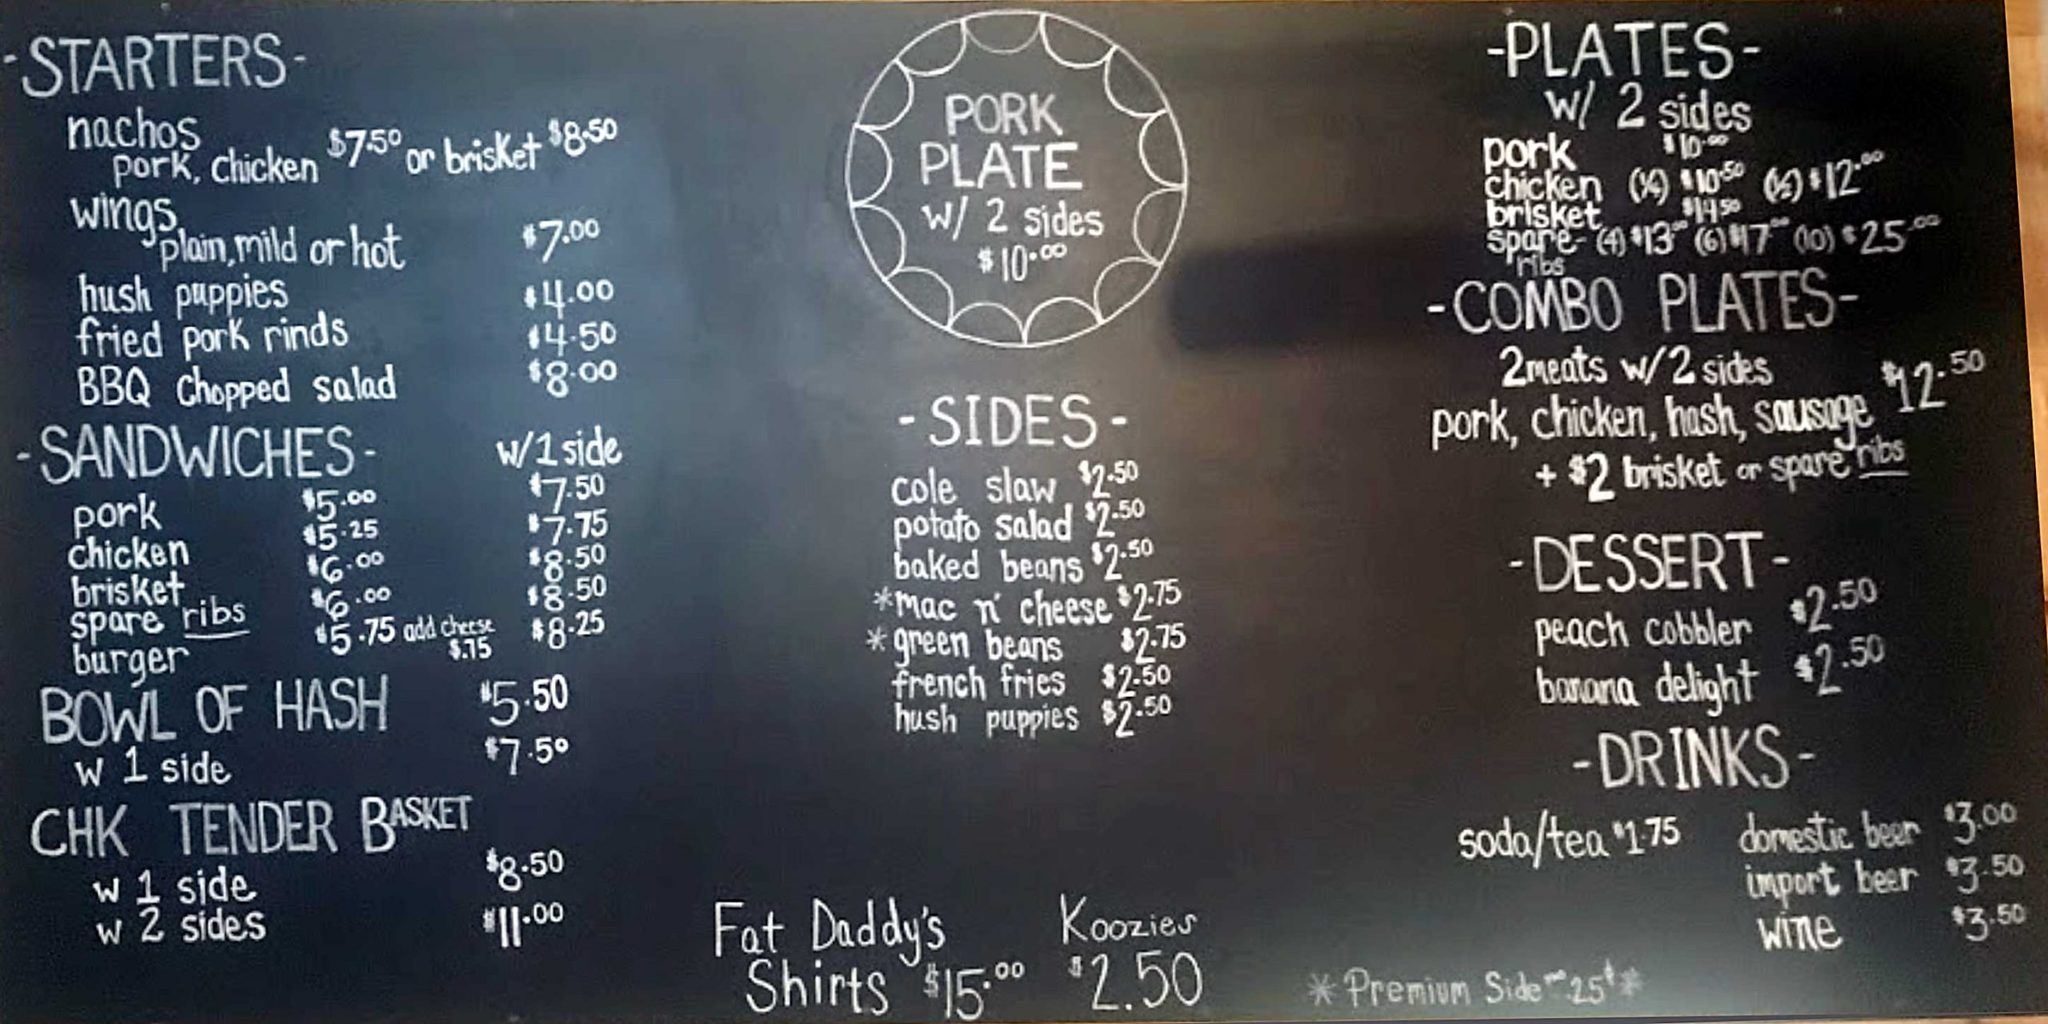 -STARTERS-
nachos
pork, chicken $7.50 or brisket $8.50
wings
plain, mild or hot $7.00
hush puppies $4.00
fried pork rinds $4.50
BBQ Chopped salad $8.00
-SANDWICHES- w/1 side
pork $5.00 $7.50
chicken $5.25 $7.75
brisket $6.00 $8.50
spare ribs $6.00 $8.50
burger $5.75 add cheese $.75 $8.25
BOWL OF HASH $5.50
w 1 side $7.50
CHK TENDER BASKET
w 1 side $8.50
w 2 sides $11.00
PORK
PLATE
w/ 2 sides
$10.00
-SIDES-
cole slaw $2.50
potato salad $2.50
baked beans $2.50
*mac n' cheese $2.75
*green beans $2.75
french fries $2.50
hush puppies $2.50
Fat Daddy's
Shirts $15.00
Koozies
$2.50
-PLATES-
w/ 2 sides
pork $10.00
chicken (¼) $10.50 (½) $12.00
brisket $14.50
spare- (4) $13.00 (6) $17.00 (10) $25.00
ribs
-COMBO PLATES-
2 meats w/ 2 sides
pork, chicken, hash, sausage $12.50
+ $2 brisket or spare ribs
-DESSERT-
peach cobbler $2.50
banana delight $2.50
-DRINKS-
soda/tea $1.75 domestic beer $3.00
import beer $3.50
wine $3.50
*Premium Side 25¢*